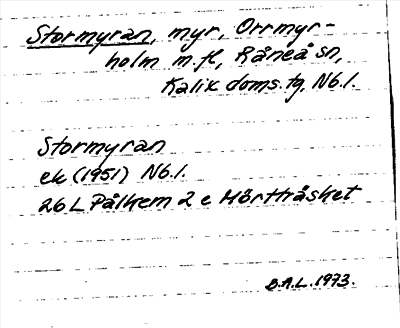 Stormyran, myr, Orrmyr-
holm m.fl., Råneå sn,
Kalix doms.tg, Nb.l.
Stormyran
ek (1951) Nb.l.
26 L Pålkem 2 e Mörtträsket
B.A.L. 1973.